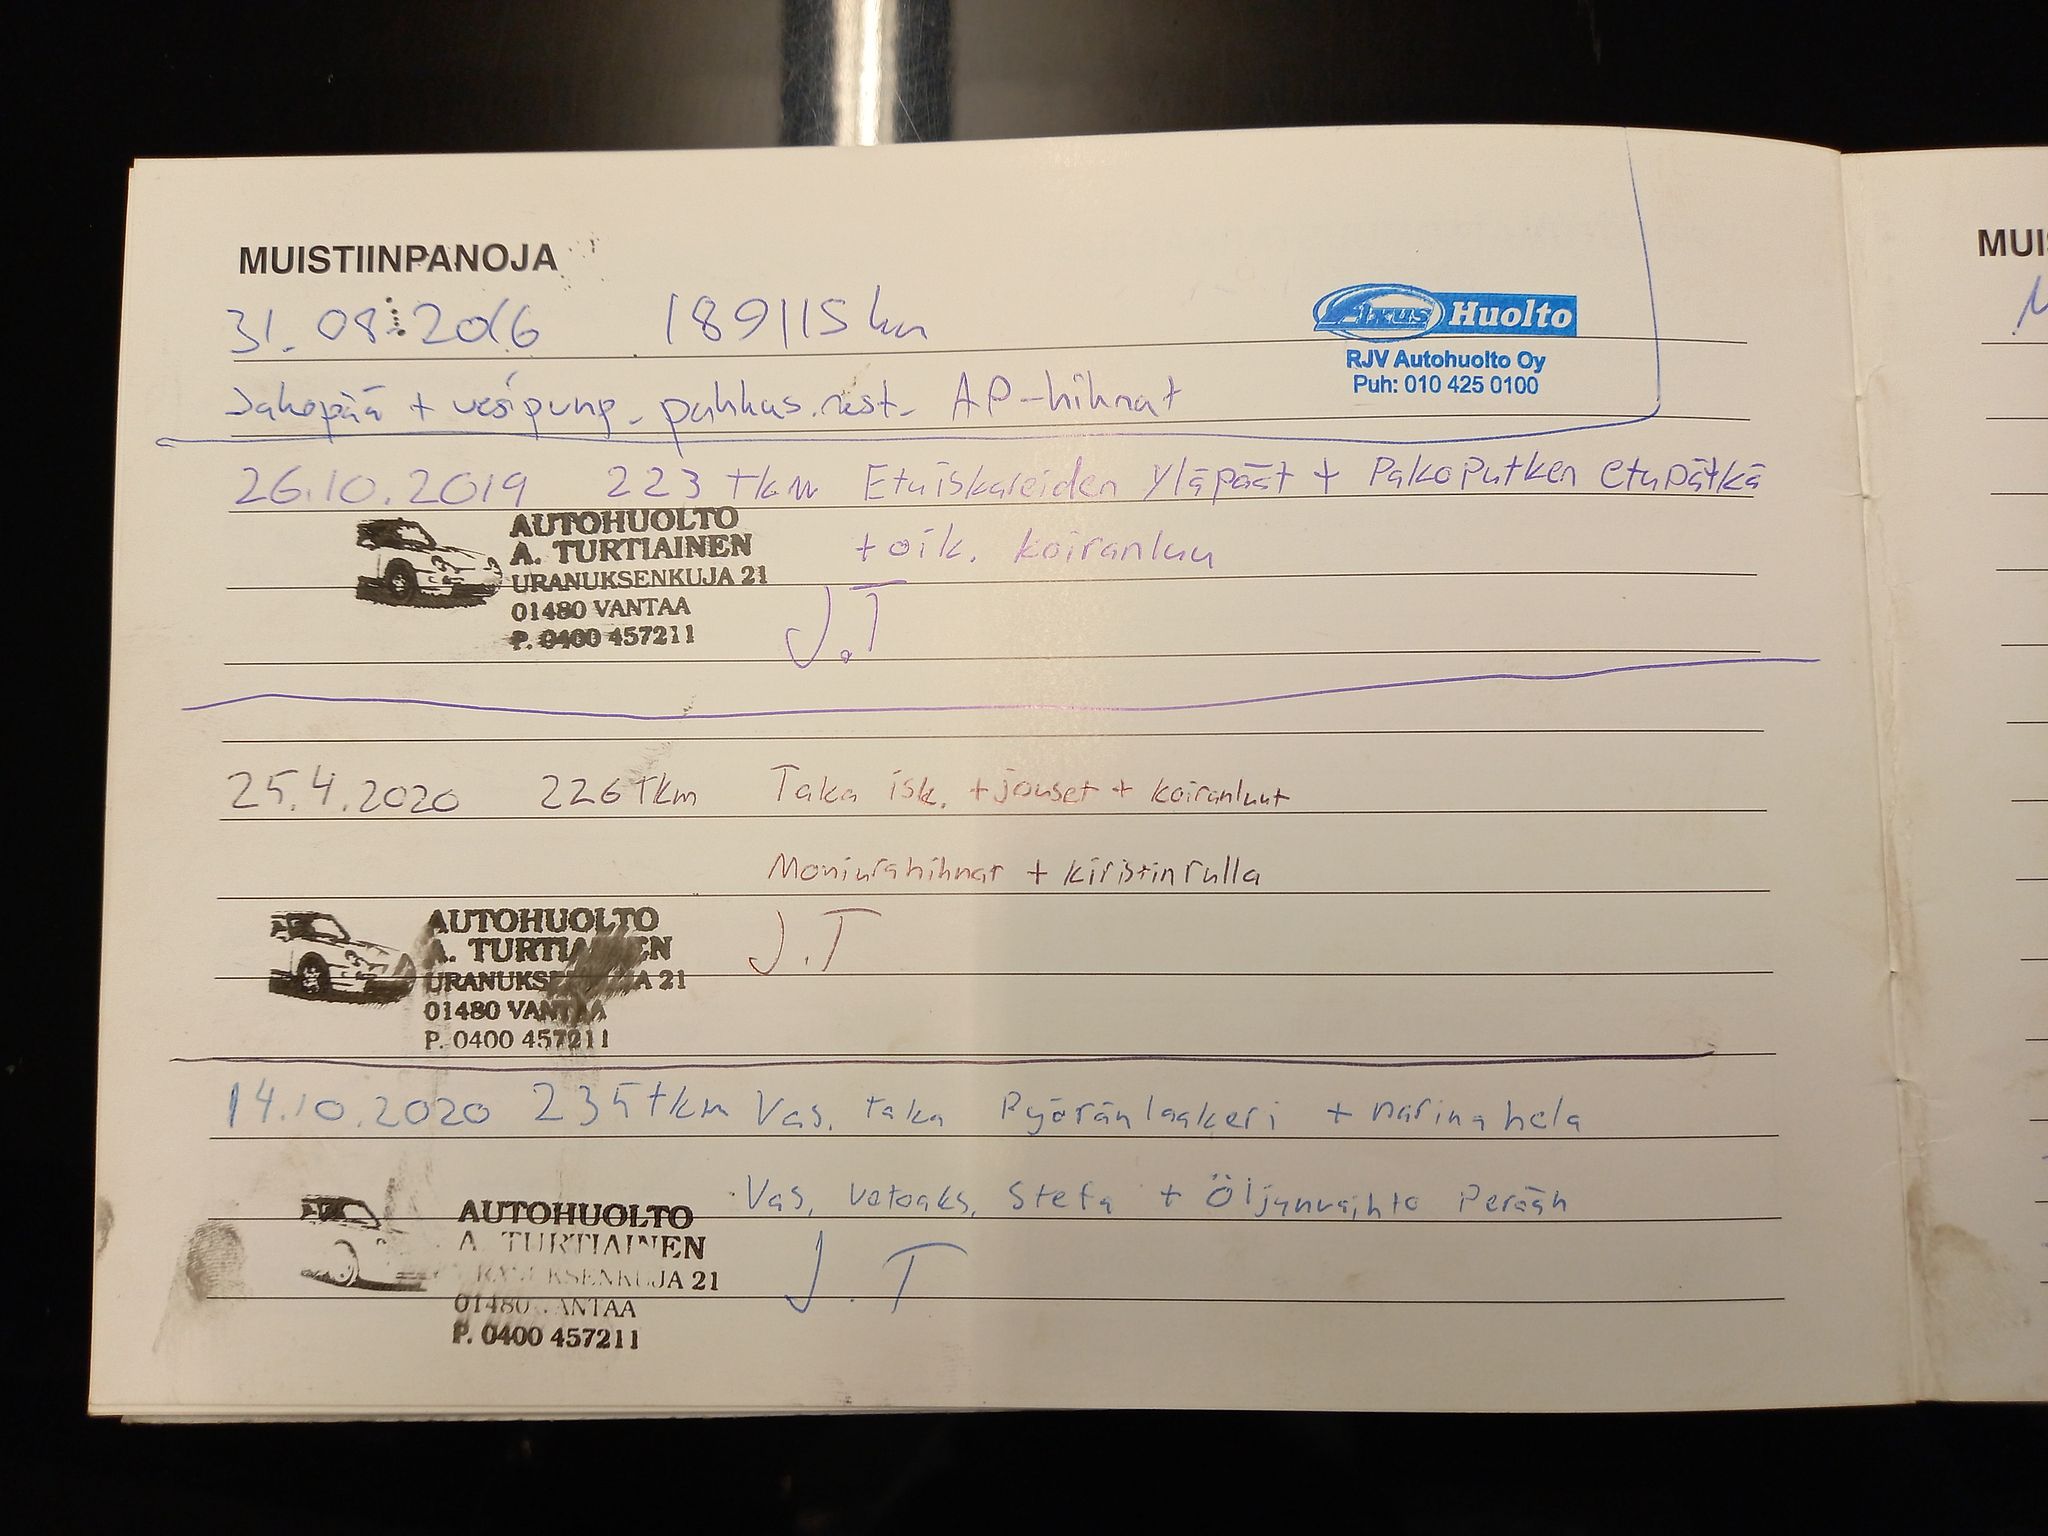 MUISTIINPANOJA
31.08.2016 189115 km
Axus Huolto
RJV Autohuolto Oy
Puh: 010 425 0100
Jakopää + vesipump. puhkus.nest. AP-hihnat
26.10.2019 223 tkm Etuiskareiden yläpäät + Pakoputken etupätkä
+ oik. koiranluu
AUTOHUOLTO
A. TURTIAINEN
URANUKSENKUJA 21
01480 VANTAA
P. 0400 457211
J.T
25.4.2020 226 tkm Taka isk. + jouset + koiranluut
Moniurahihnat + kiristinrulla
AUTOHUOLTO
A. TURTIAINEN
URANUKSENKUJA 21
01480 VANTAA
P. 0400 457211
J.T
14.10.2020 235 tkm Vas. taka Pyöränlaakeri + narina hela
Vas. vetoaks. Stefa + Öljynvaihto Perään
AUTOHUOLTO
A. TURTIAINEN
URANUKSENKUJA 21
01480 VANTAA
P. 0400 457211
J.T
MUI